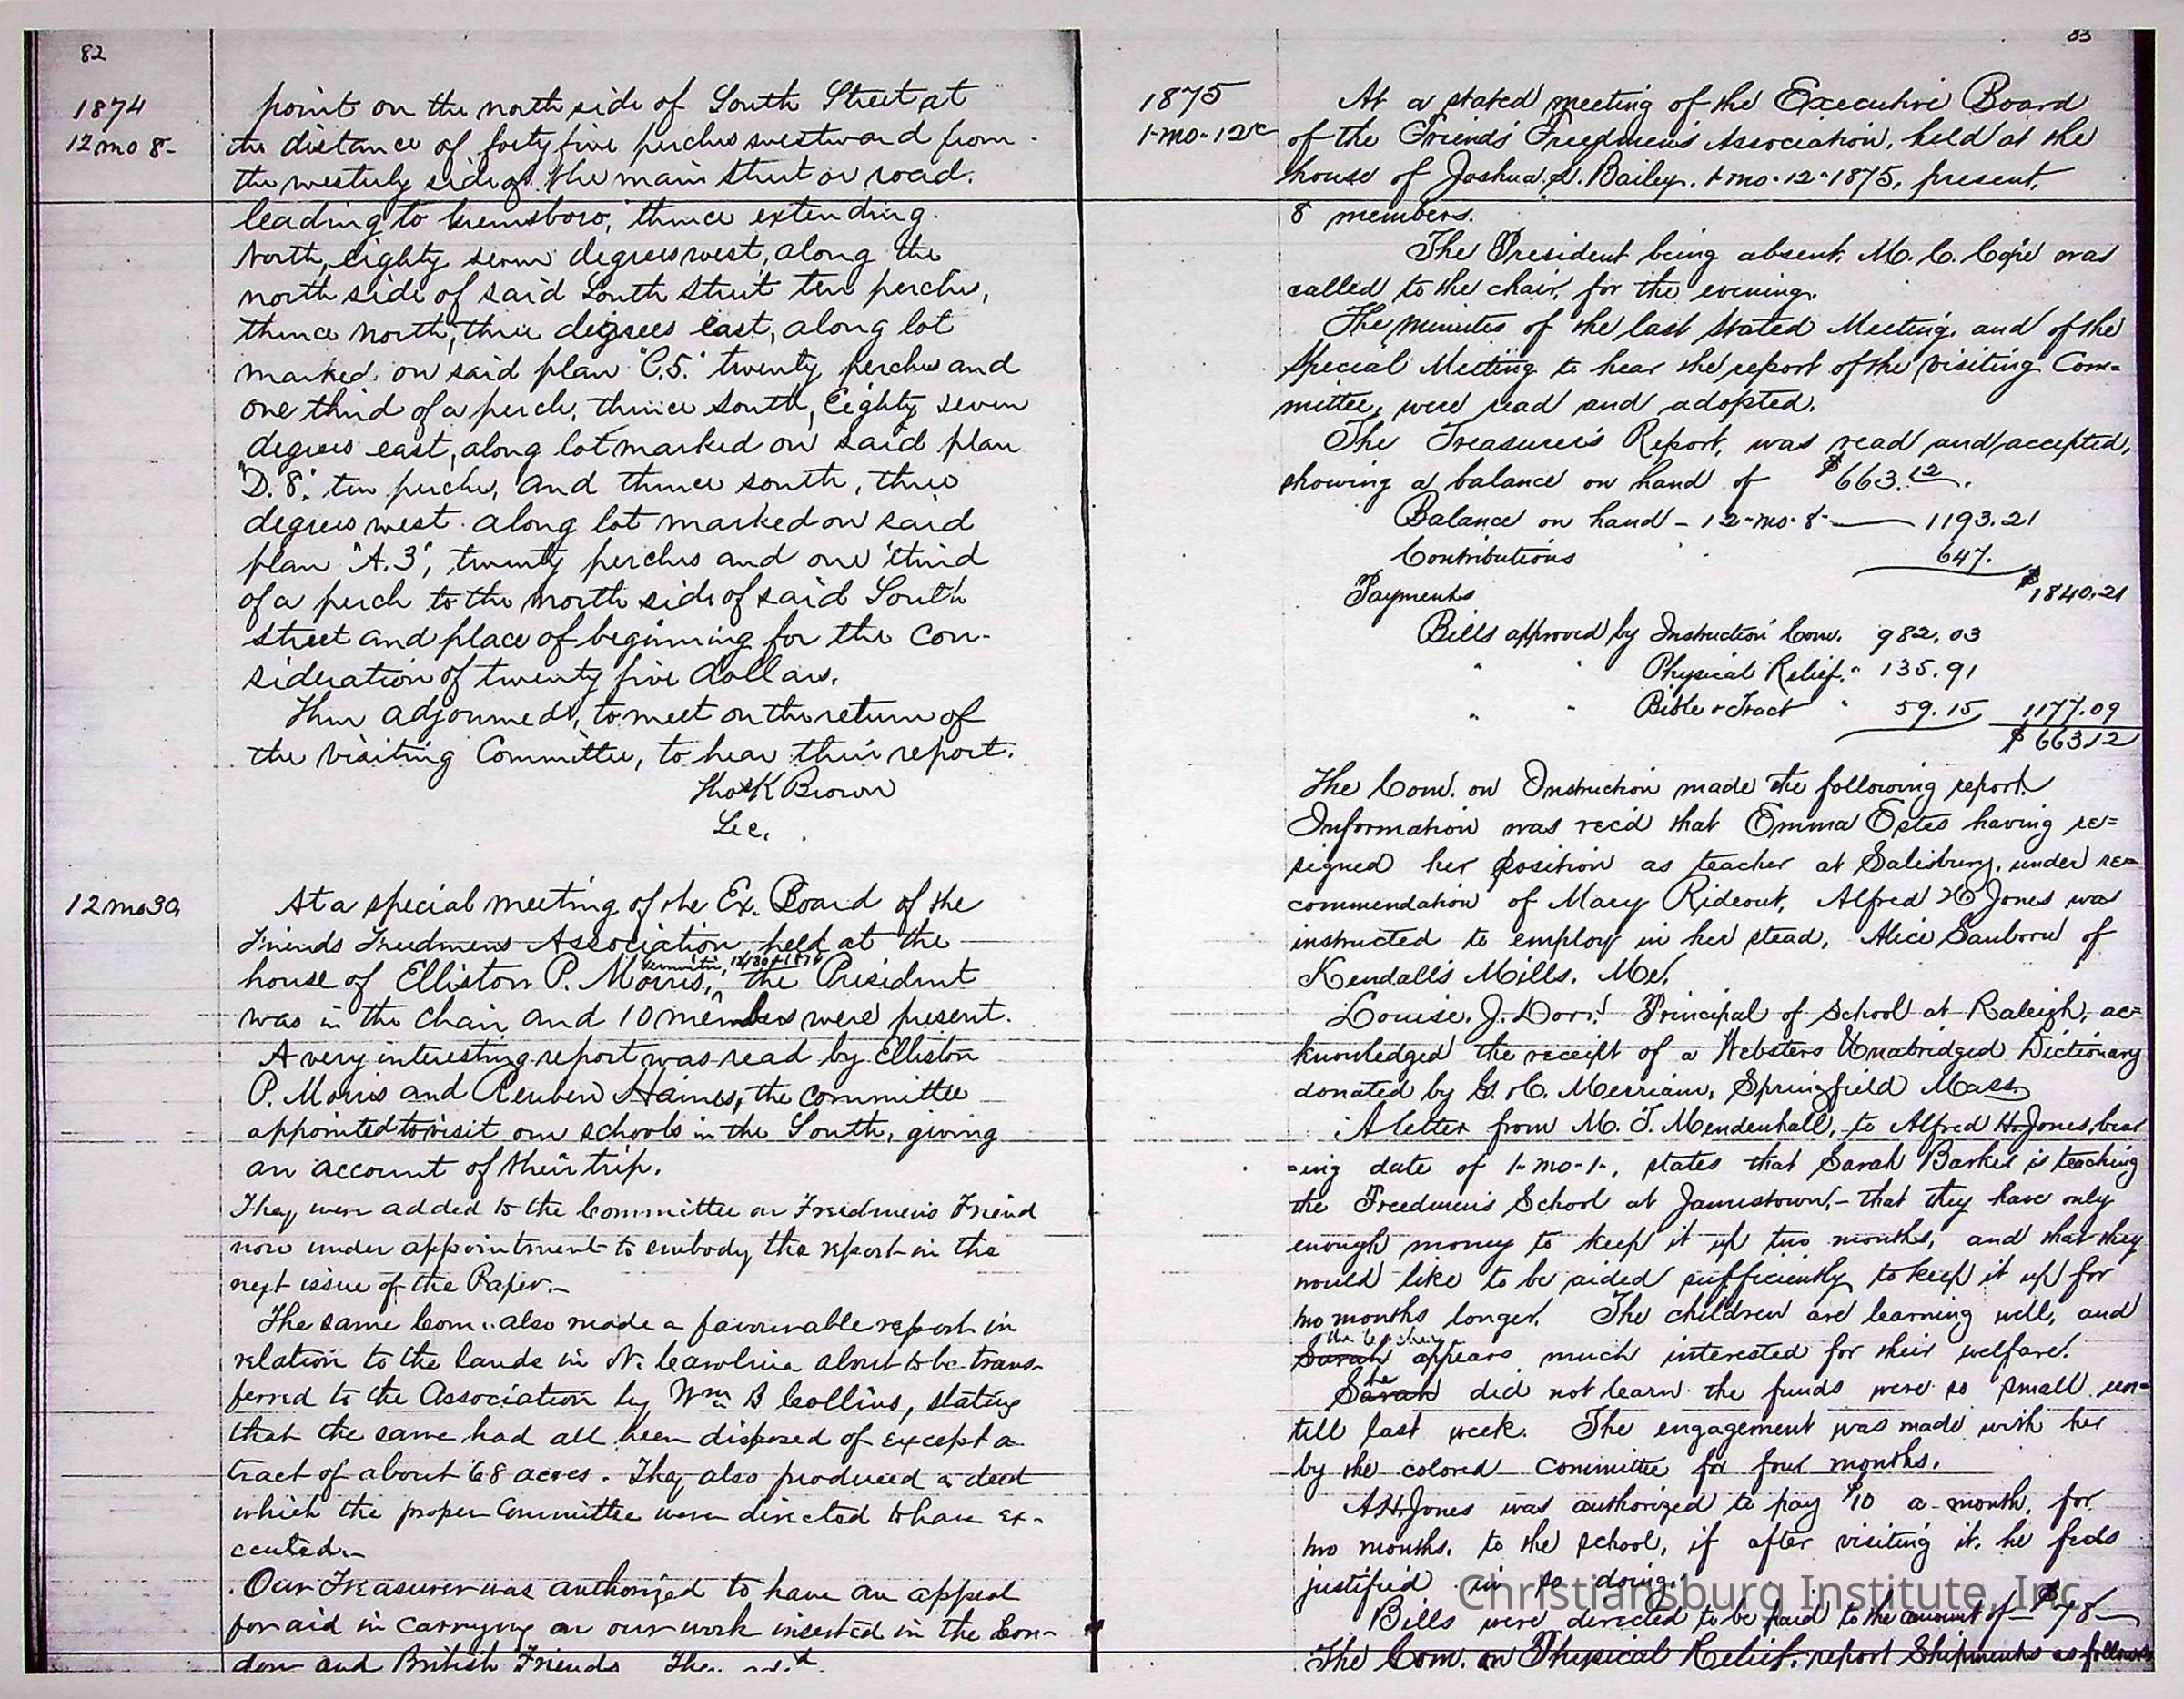 82
1874
12 mo 8-
point on the north side of South Street, at
the distance of forty five perches westward from
the westerly side of the main street or road.
leading to Greensboro; thence extending
North, eighty seven degrees west, along the
north side of said South Street ten perches,
thence north, three degrees east, along lot
marked, on said plan "C.5." twenty perches and
one third of a perch, thence south, Eighty seven
degrees east, along lot marked on said plan
"D. 8." ten perches, and thence south, three
degrees west along lot marked on said
plan "A.3", twenty perches and one third
of a perch to the north side of said South
street and place of beginning for the con-
sideration of twenty five dollars.
Then adjourned, to meet on the return of
the Visiting Committee, to hear their report.
Thos K Brown
Sec.
12 mo 30
At a special meeting of the Ex. Board of the
Friends Freedmens Association, held at the
house of Elliston P. Morris, the President
was in the chair and 10 members were present.
A very interesting report was read by Elliston
P. Morris and Reuben Haines, the committee
appointed to visit our schools in the South, giving
an account of their trip.
They were added to the Committee on Freedmen's Friend
now under appointment to embody the report in the
next issue of the Paper.-
The same Com.. also made a favourable report in
relation to the lands in N. Carolina about to be trans-
ferred to the Association by Wm B Collins, stating
that the same had all been disposed of except a
tract of about 68 acres. They also produced a deed
which the proper Committee were directed to have ex-
ecuted.-
Our Treasurer was authorized to have an appeal
for aid in carrying on our work inserted in the Lon-
don and British Friends
83
1875
1-mo-12-
At a stated meeting of the Executive Board
of the Friends' Freedmen's Association, held at the
house of Joshua L. Bailey, 1-mo-12-1875, present,
8 members.
The President being absent, M. C. Cope was
called to the chair, for the evening.
The minutes of the last stated Meeting, and of the
special Meeting to hear the report of the Visiting Com-
mittee, were read and adopted.
The Treasurer's Report, was read and accepted,
showing a balance on hand of $663.12.
Balance on hand - 12-mo-8- 1193.21
Contributions 647.
$1840.21
Payments
Bills approved by Instruction Com. 982.03
" " Physical Relief. " 135.91
" " Bible & Tract " 59.15 1177.09
$663.12
The Com. on Instruction made the following report.
Information was rec'd that Emma Estes having re=
signed her position as teacher at Salisbury, under re=
commendation of Mary Rideout, Alfred H Jones was
instructed to employ in her stead, Alice Sanborn of
Kendall's Mills. Me.
Louise. J. Dorr. Principal of School at Raleigh, ac=
knowledged the receipt of a Websters Unabridged Dictionary
donated by G. & C. Merriam, Springfield Mass.
A letter from M. J. Mendenhall, to Alfred H. Jones, bear
=ing date of 1-mo-1-, states that Sarah Barker is teaching
the Freedmen's School at Jamestown,- that they have only
enough money to keep it up two months, and that they
would like to be aided sufficiently to keep it up for
two months longer. The children are learning well, and
the teacher
Sarah appears much interested for their welfare.
She
Sarah did not learn the funds were so small un=
till last week. The engagement was made with her
by the colored committee for four months.
A H Jones was authorized to pay $10 a month, for
two months, to the school, if after visiting it, he feels
justified in so doing.
Christiansburg Institute, Inc.
Bills were directed to be paid to the amount of $78-
The Com. on Physical Relief, report Shipments as follows